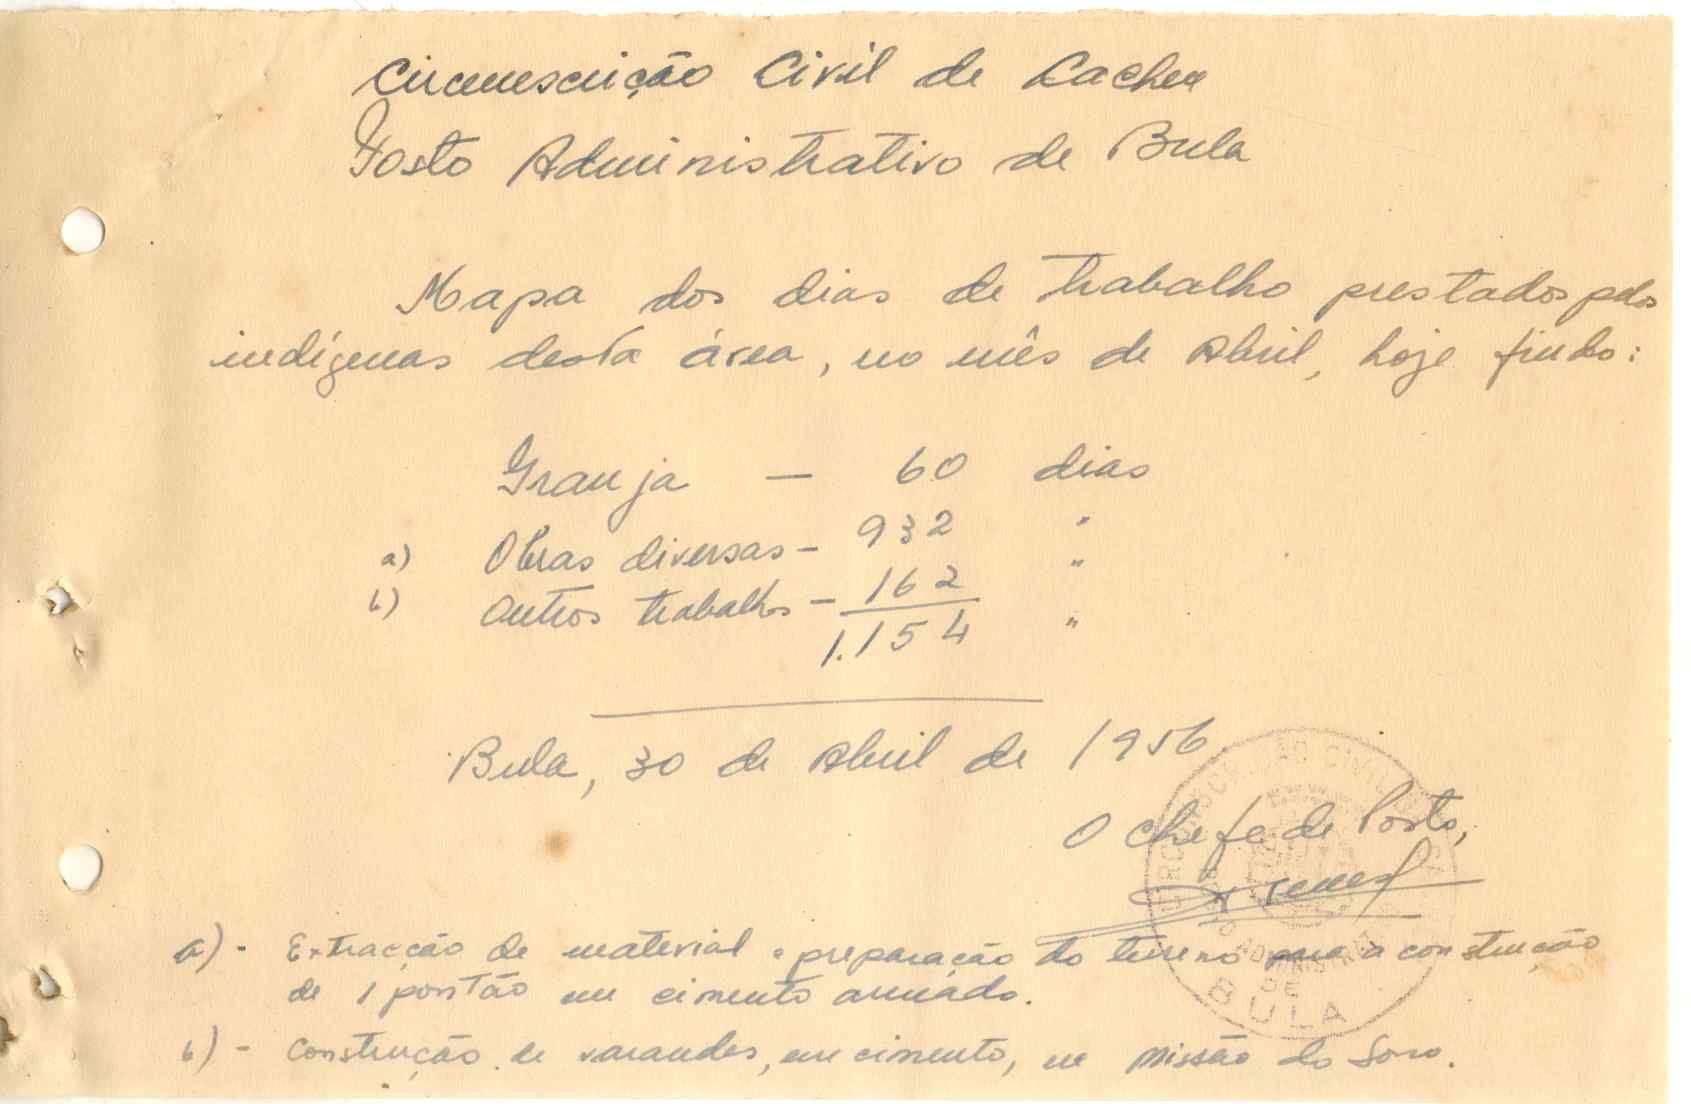 Circunscrição Civil de Cacheu
Posto Administrativo de Bula
Mapa dos dias de trabalho prestados pelos
indígenas desta área, no mês de Abril, hoje findo:
Granja — 60 dias
a) Obras diversas - 932 "
b) Outros trabalhos - 162 "
1.154 "
Bula, 30 de Abril de 1956
O Chefe de Posto,
a) - Extracção de material e preparação do terreno para a construção
de 1 pontão em cimento armado.
b) - Construção de varandas, em cimento, na Missão do Sono.
CIRCUNSCRIÇÃO CIVIL
ADMINISTRAT
DE
BULA